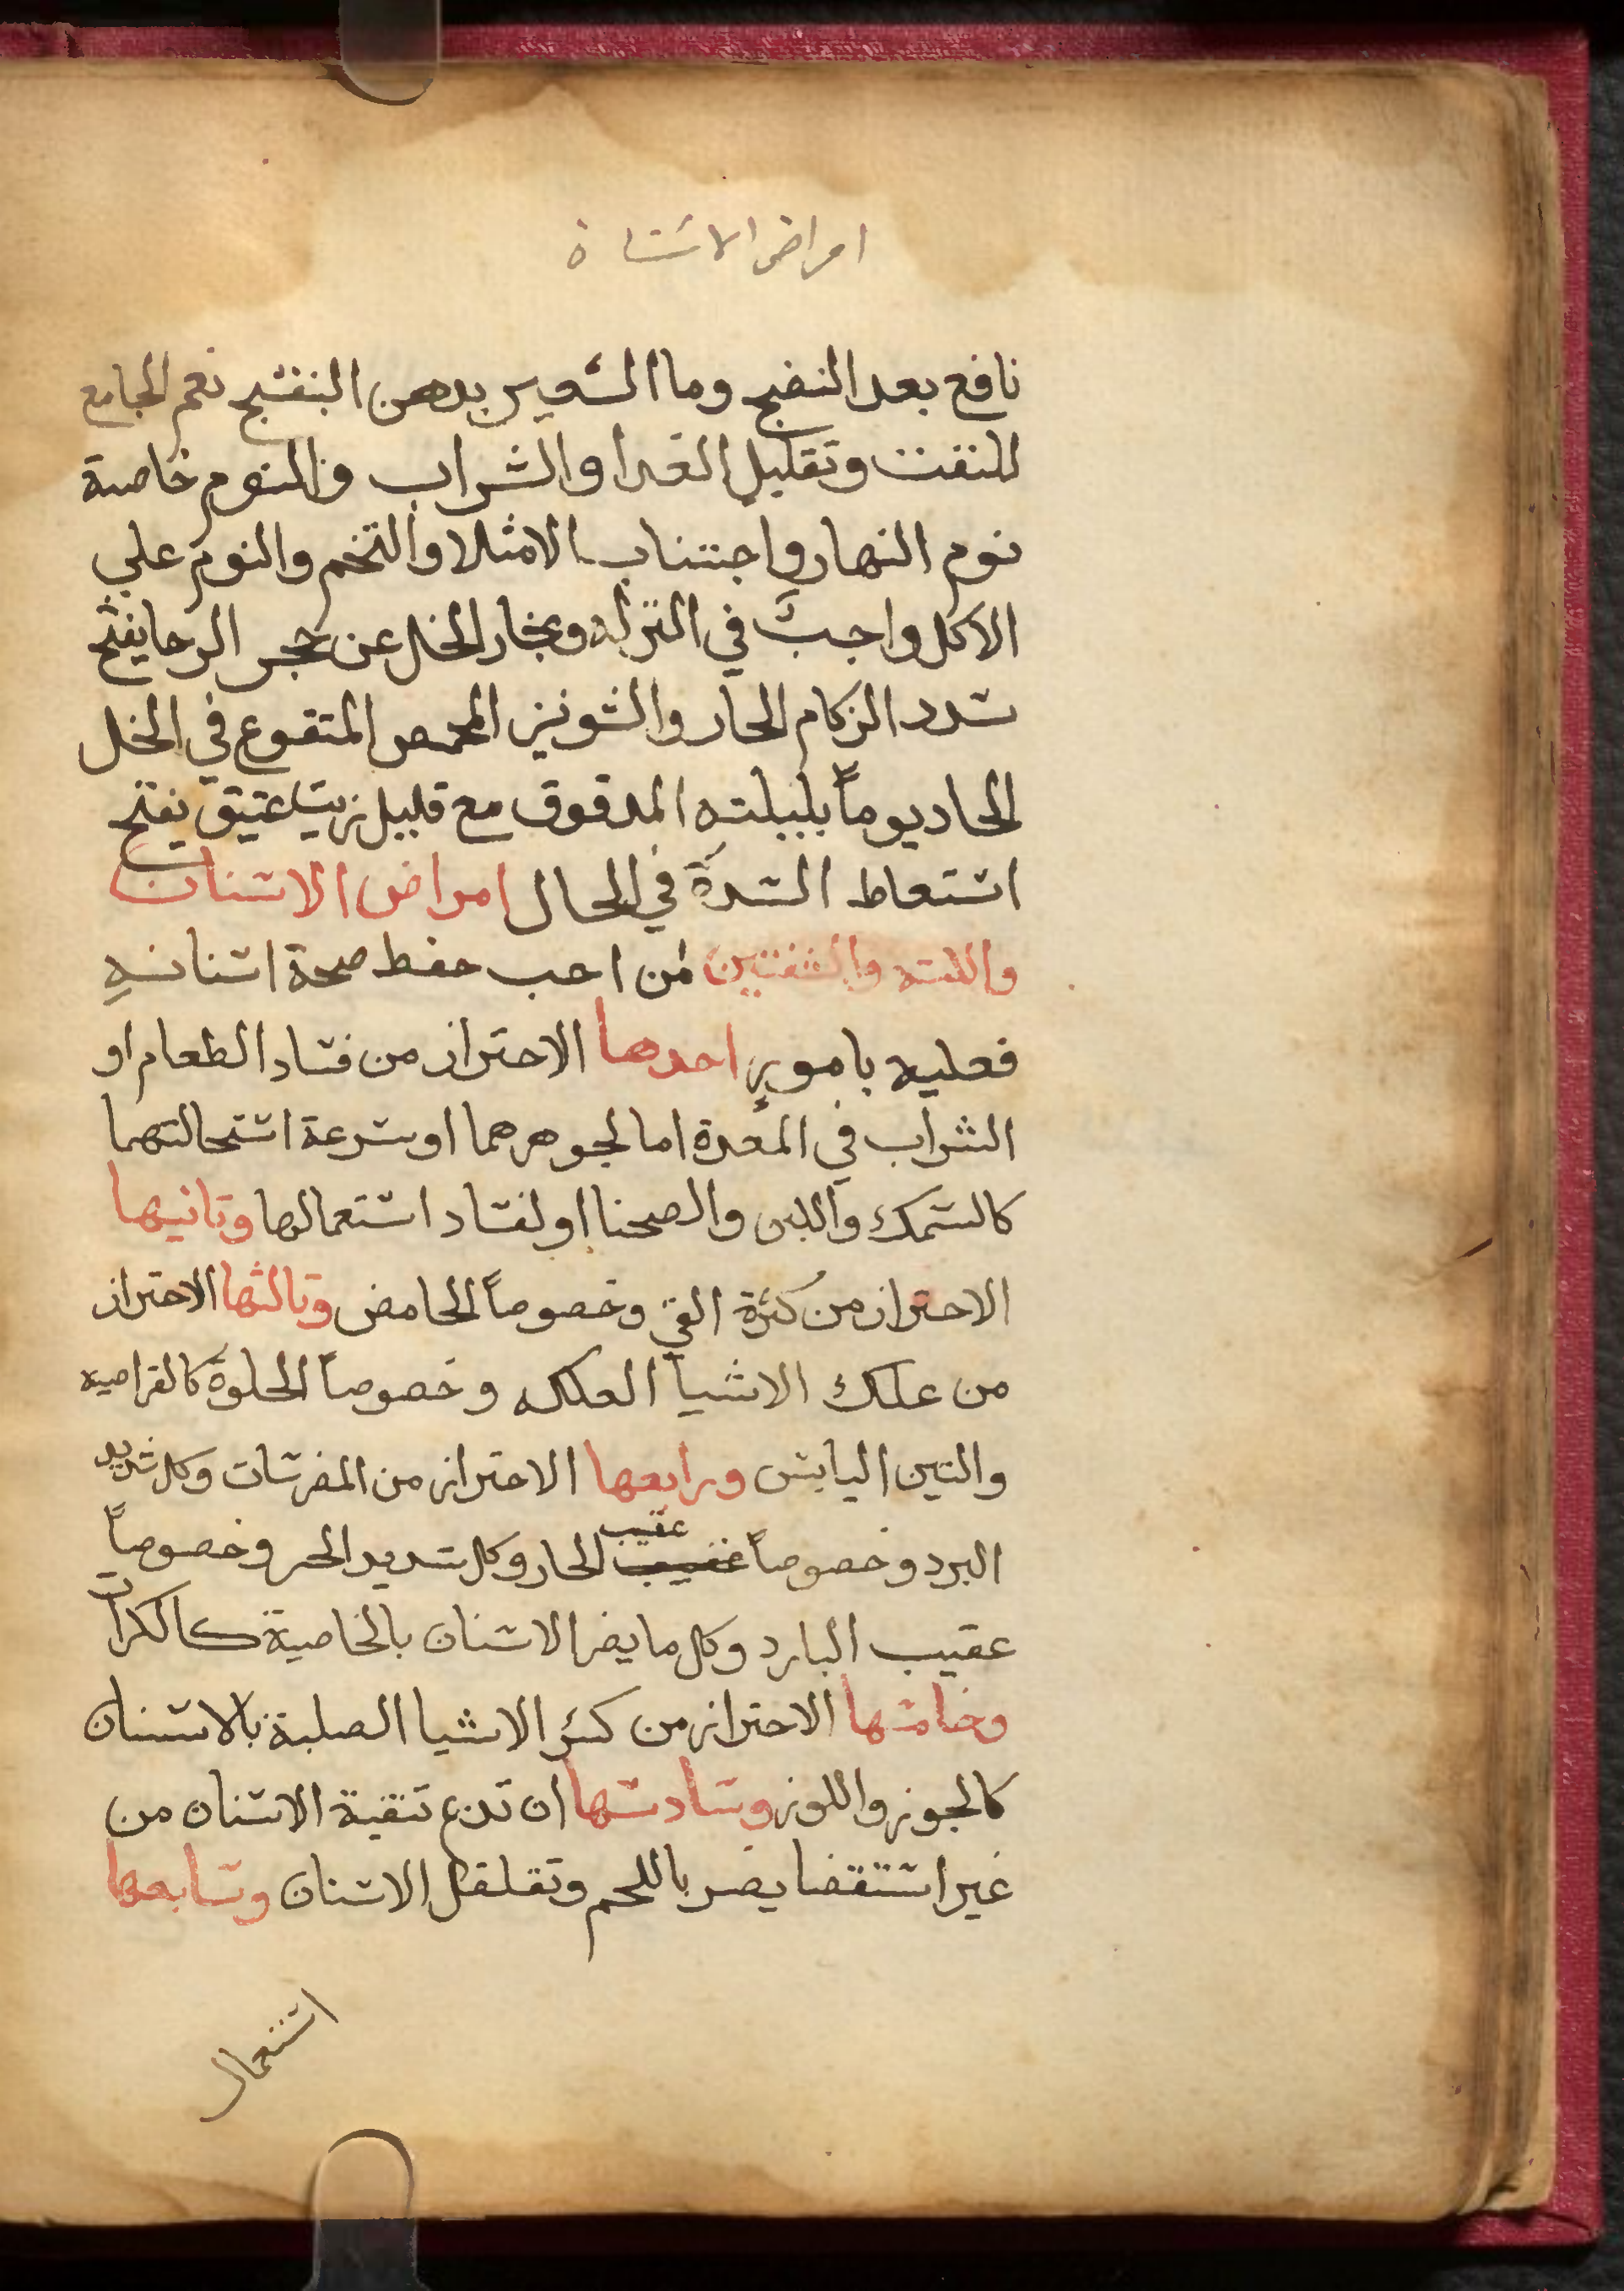 امراض الاسنان
نافع بعد النضج وما الشعير بدهن البنفسج نعم الجامع
للنفث وتقليل الغدا والشراب والنوم خاصة
نوم النهار واجتناب الامتلا والتخم والنوم علي
الاكل واجبٌ في النزله وبخار الخل عن حجر الرحا يفتح
سدد الزكام الحار والشونيز المحمص المنقوع في الخل
الحاد يوماً بليلته المدقوق مع قليل زيت عتيق يفتح
استعاط السدة في الحال امراض الاسنان
واللثه والشفتين من احب حفظ صحة اسنانهِ
فعليه بامورٍ احدها الاحتراز من فساد الطعام او
الشراب في المعدة اما لجوهرهما او سرعة استحالتهما
كالسمك واللبن والصحنا او لفساد استعمالها وثانيها
الاحتراز من كثرة القي وخصوصاً الحامض وثالثها الاحتراز
من علك الاشيا العلكه وخصوصاً الحلوة كالقراصيه
والتين اليابس ورابعها الاحتراز من المضرسات وكل شديد
البرد وخصوصاً عقيب الحار وكل شديد الحر وخصوصاً
عقيب البارد وكل ما يضر الاسنان بالخاصية كالكراث
وخامسها الاحتراز من كسر الاشيا الصلبة بالاسنان
كالجوز واللوز وسادسها ان تدع تنقية الاسنان من
غير استقضا يضر باللحم وتقلقل الاسنان وسابعها
استعمال